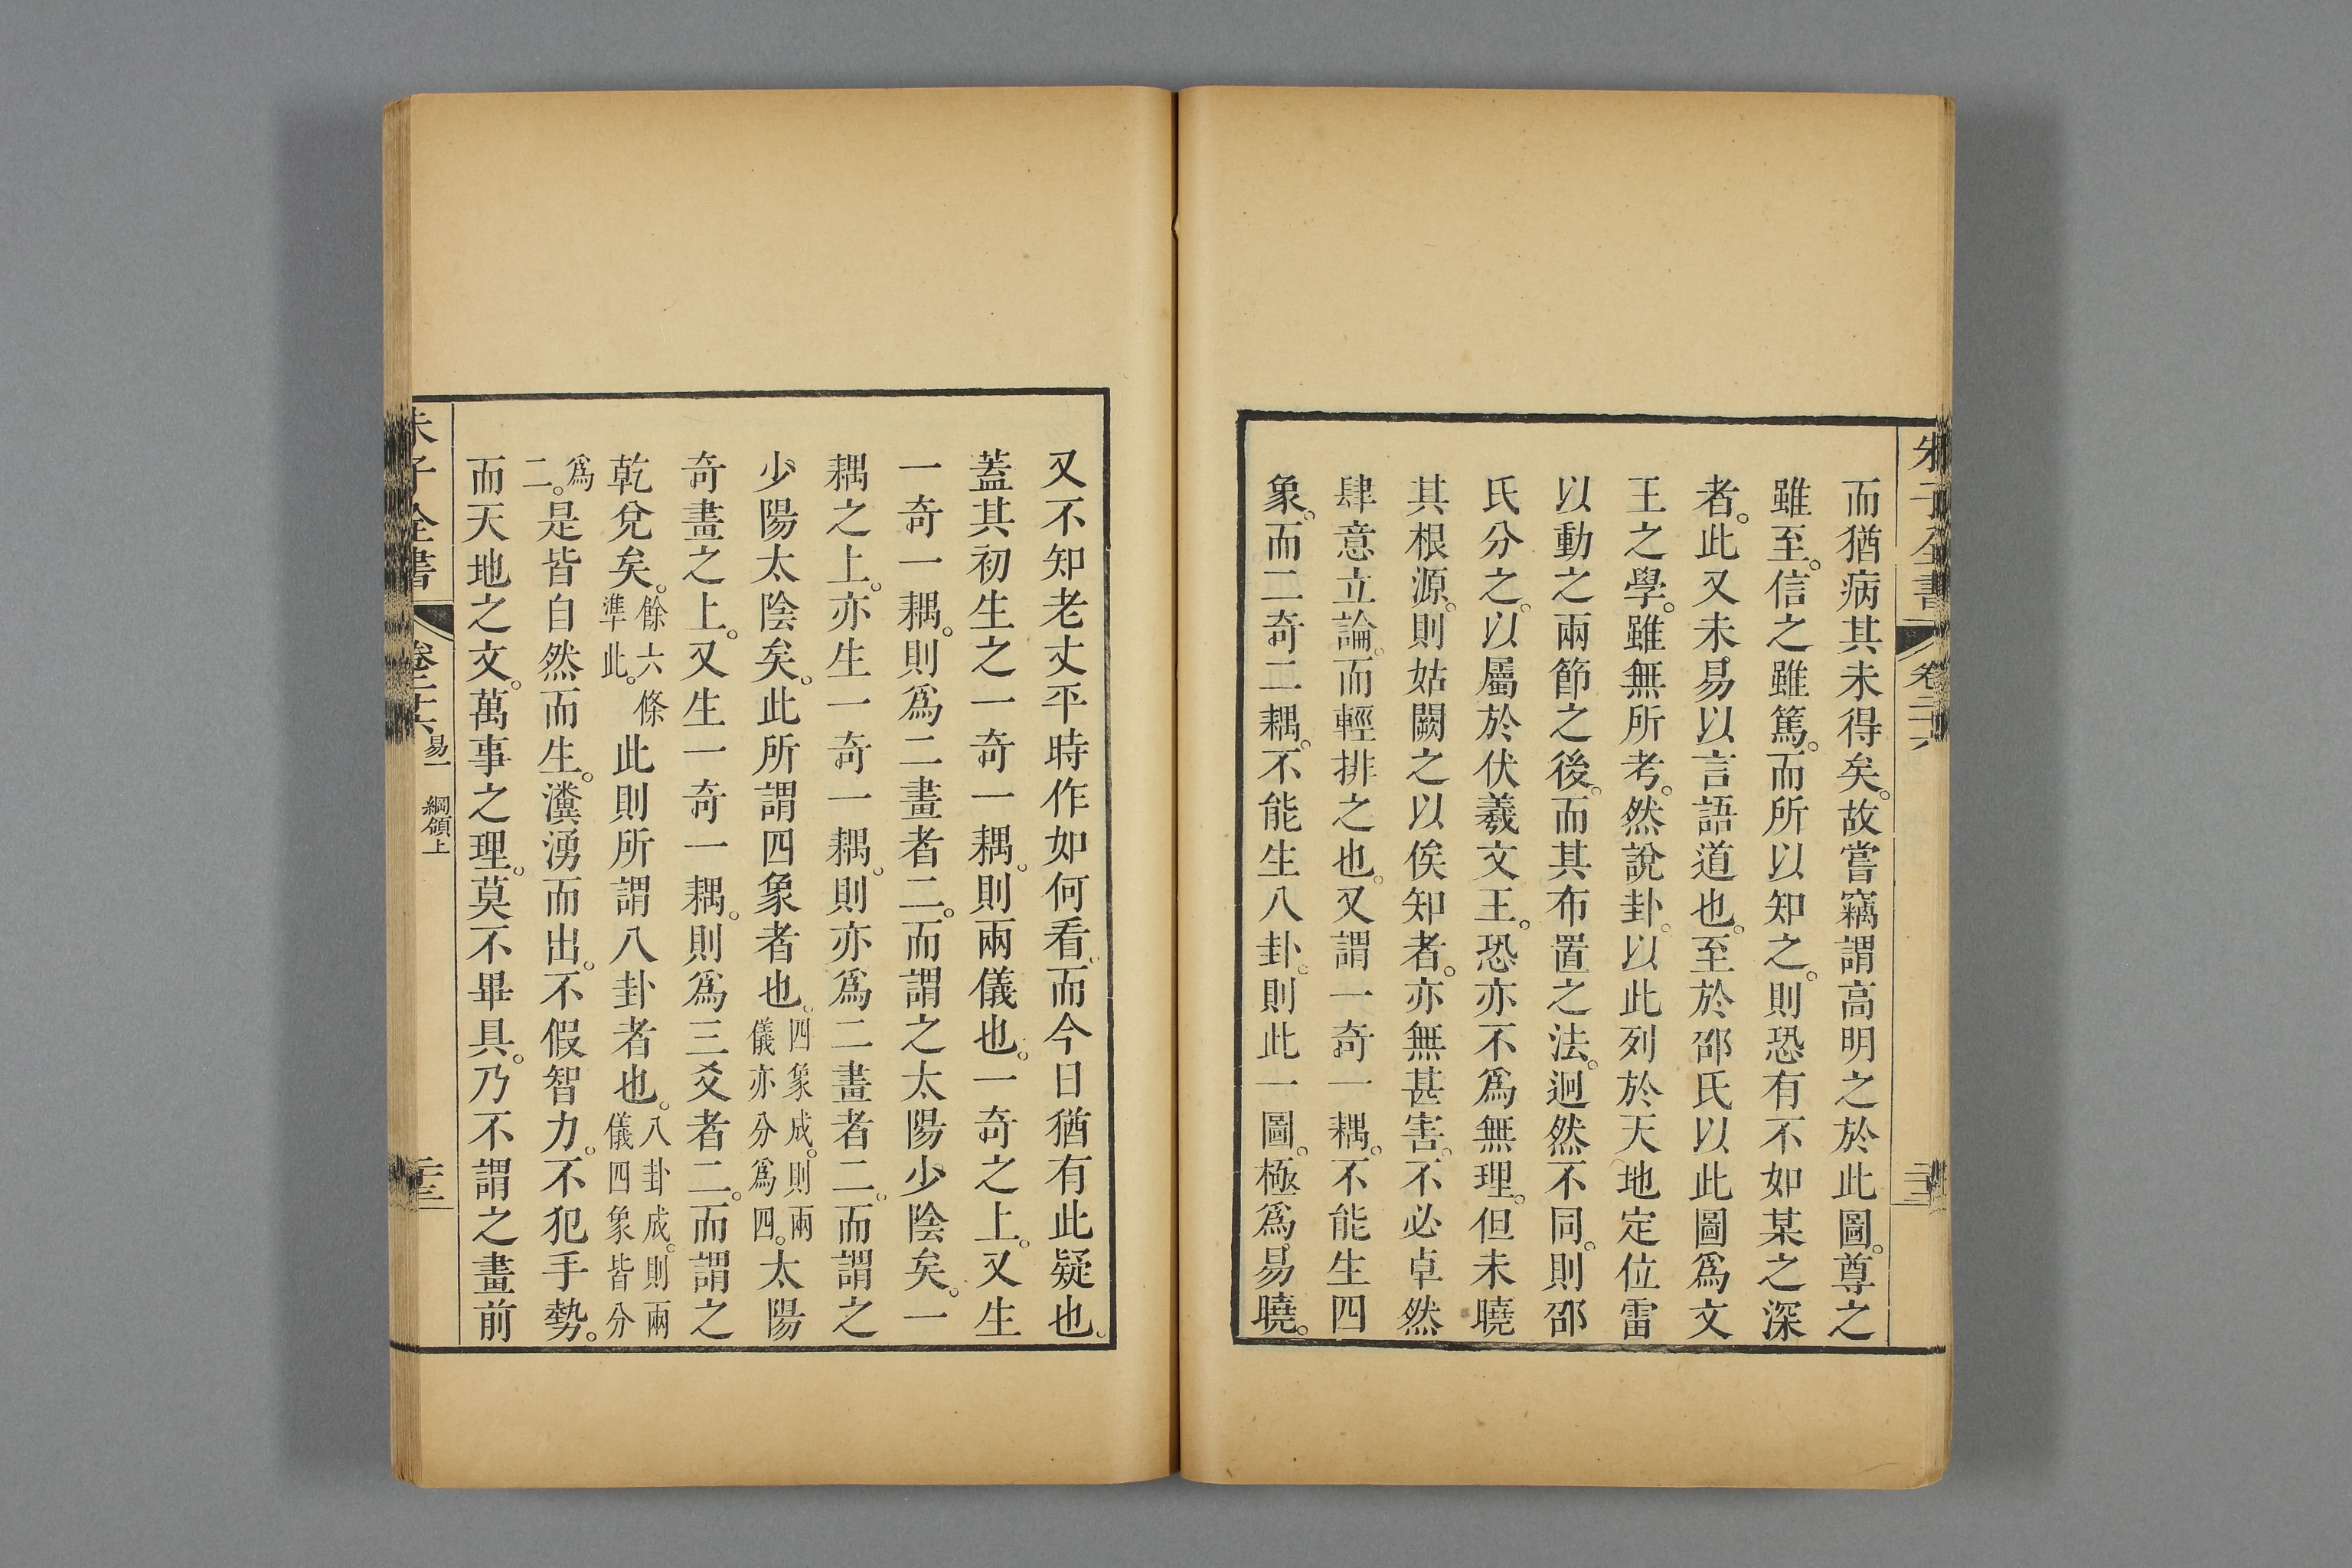 朱子全書 卷二十六
而猶病其未得矣。故嘗竊謂高明之於此圖。尊之
雖至。信之雖篤。而所以知之。則恐有不如某之深
者。此又未易以言語道也。至於邵氏以此圖爲文
王之學。雖無所考。然說卦。以此列於天地定位雷
以動之兩節之後。而其布置之法。迥然不同。則邵
氏分之。以屬於伏羲文王。恐亦不爲無理。但未曉
其根源。則姑闕之以俟知者。亦無甚害。不必卓然
肆意立論。而輕排之也。又謂一奇一耦。不能生四
象。而二奇二耦。不能生八卦。則此一圖。極爲易曉。
又不知老丈平時作如何看。而今日猶有此疑也。
蓋其初生之一奇一耦。則兩儀也。一奇之上。又生
一奇一耦。則爲二畫者二。而謂之太陽少陰矣。一
耦之上。亦生一奇一耦。則亦爲二畫者二。而謂之
少陽太陰矣。此所謂四象者也。四象成。則兩儀亦分爲四。太陽
奇畫之上。又生一奇一耦。則爲三爻者二。而謂之
乾兌矣。餘六條準此。此則所謂八卦者也。八卦成。則兩儀四象皆分
爲二。是皆自然而生。瀵湧而出。不假智力。不犯手勢。
而天地之文。萬事之理。莫不畢具。乃不謂之畫前
朱子全書 卷二十六 易一 綱領上 二十三